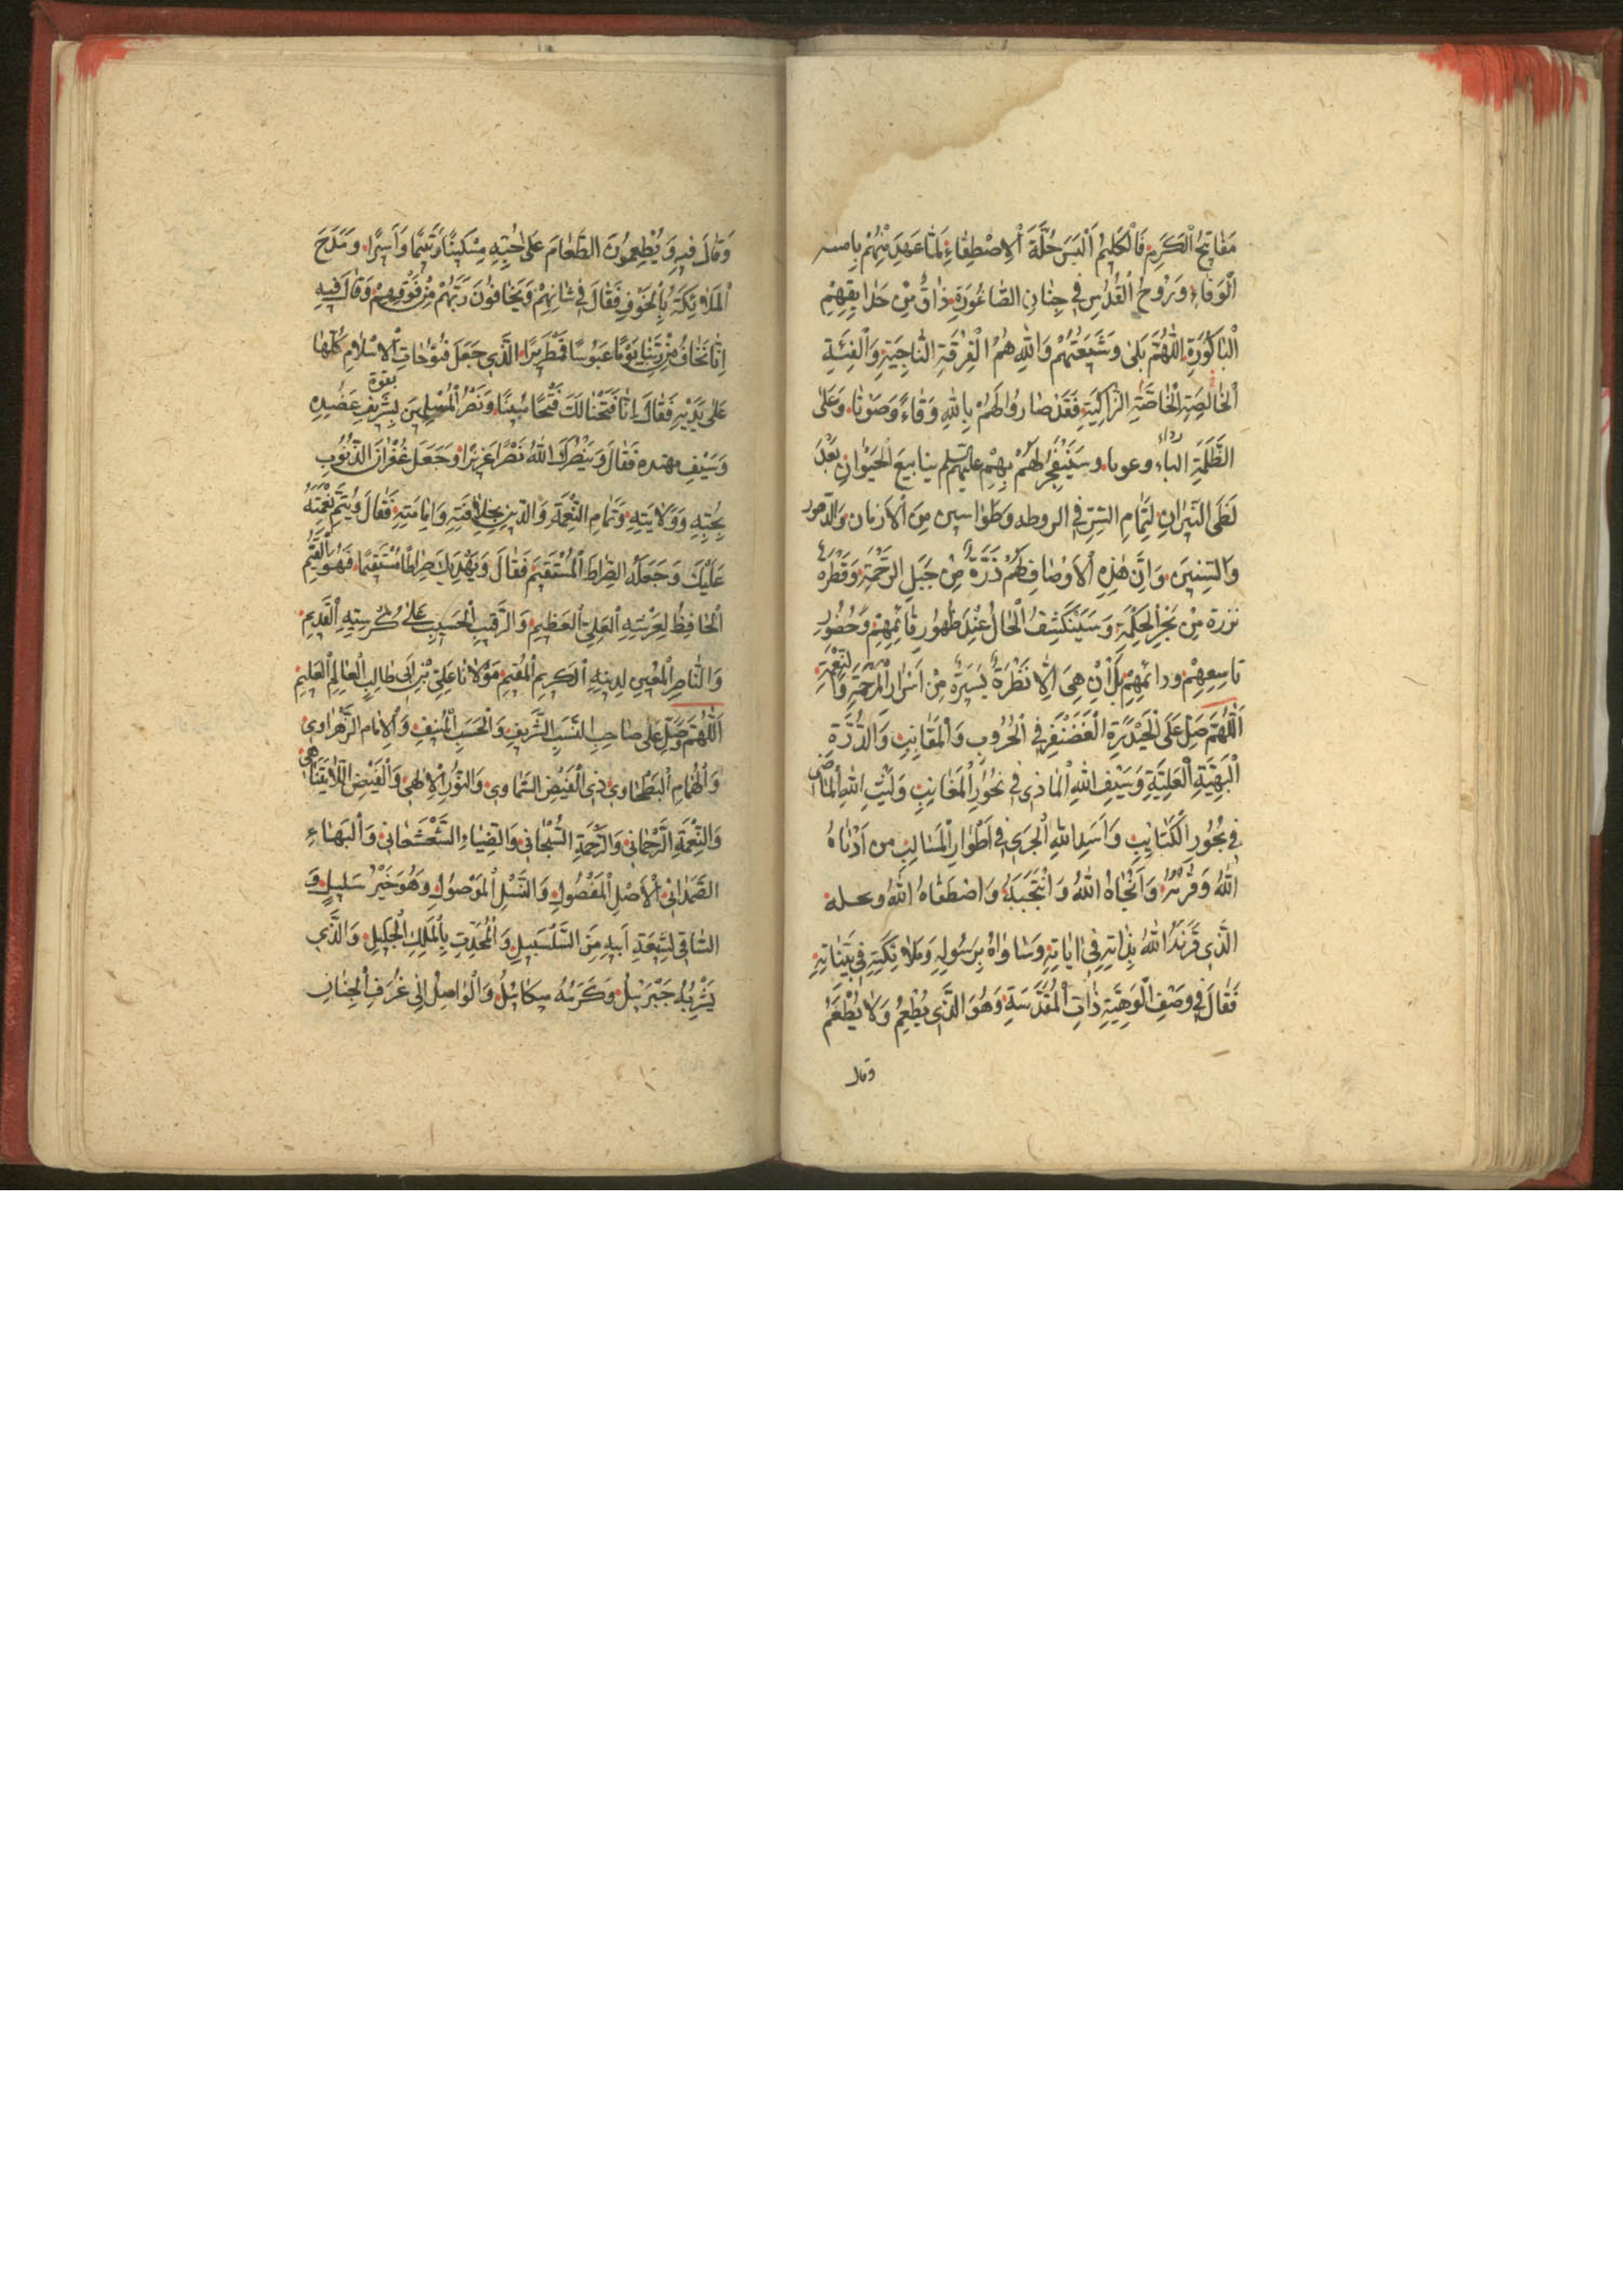 مَفَاتِيحُ الْكَرَمِ فَالْكَلِيمُ اُلْبِسَ حُلَّةَ الْاِصْطِفَاءِ لَمَّا عَهِدَ مِنْهُمْ
الْوَفَاءَ وَرُوحُ الْقُدُسِ فِي جِنَانِ الصَّاغُورَةِ ذَاقَ مِنْ حَدَايِقِهِمْ
الْبَاكُورَةَ اللّٰهُمَّ بَلٰى وَشِيعَتُهُمْ وَاللّٰهِ هُمُ الْفِرْقَةُ النَّاجِيَةُ وَالْفِئَةُ
الْخَالِصَةُ الْخَاصَّةُ الزَّاكِيَةُ فَقَدْ صَارُوا لَهُمْ بِاللّٰهِ وَقَاءً وَصَوْنًا وَعَلَى
الظَّلَمَةِ وعونا وسينفجر لَهُمْ بِهِمْ ينابيع الْحَيَوَانِ بَعْدَ
لَظَى النِّيرَانِ لِتَمَامِ وطواسين مِنَ الْأزمان وَالدّهور
وَالسِّنِينَ وَاِنَّ هٰذِهِ الْاَوْصَافَ لَهُمْ ذَرَّةٌ مِنْ جَبَلِ الرَّحْمَةِ وَقَطْرَةٌ
نزرة مِنْ بَحْرِ الْحِكْمَةِ وَسَيَنْكَشِفُ الْحَالُ عِنْدَ ظُهُورِ قَائِمِهِمْ وَحُضُورِ
تَاسِعِهِمْ ودائمهم بَلْ اِنْ هِيَ اِلَّا نَظْرَةٌ يَسِيرَةٌ مِنْ اَسْرَارِ الْمَرْحَمَةِ وَالنِّعْمَةِ
اَللّٰهُمَّ صَلِّ عَلَى الْحَيْدَرَةِ الْغَضَنْفَرِ فِي الْحُرُوبِ وَالْمَقَانِبِ وَالدُّرَّةِ
الْبَهِيَّةِ الْعَلِيَّةِ وَسَيْفِ اللّٰهِ فِي نُحُورِ وَلَيْثِ اللّٰهِ الْمَاضِي
فِي بُحُورِ الْكَتَائِبِ وَاَسَدِ اللّٰهِ الْجَرِي فِي اَطْوَارِ الْمَسَالِبِ من اَدْنَاهُ
اللّٰهُ وَقَرَّبَهُ وَاَنْجَاهُ اللّٰهُ وَانْتَجَبَهُ وَاصْطَفَاهُ اللّٰهُ
الَّذِي قَرَنَهُ اللّٰهُ بِذَاتِهِ فِي اٰيَاتِهِ وَسَاوَاهُ بِرَسُولِهِ وَمَلَائِكَتِهِ فِي بَيِّنَاتِهِ
فَقَالَ فِي وَصْفِ اُلُوهِيَّةِ ذَاتِ الْمُقَدَّسَةِ وَهُوَ الَّذِي يُطْعِمُ وَلَا يُطْعَمُ
وقال
وَقَالَ فِيهِ وَيُطْعِمُونَ الطَّعَامَ عَلَى حُبِّهِ مِسْكِينًا وَيَتِيمًا وَاَسِيرًا وَمَدَحَ
الْمَلَائِكَةَ بِالْخَوْفِ فَقَالَ فِي شَانِهِمْ وَيَخَافُونَ رَبَّهُمْ مِنْ فَوْقِهِمْ وَقَالَ فِيهِ
اِنَّا نَخَافُ مِنْ رَبِّنَا يَوْمًا عَبُوسًا قَمْطَرِيرًا الَّذِي جَعَلَ فُتُوحَاتِ الْاِسْلَامِ كُلَّهَا
عَلَى يَدَيْهِ فَقَالَ اِنَّا فَتَحْنَا لَكَ فَتْحًا مُبِينًا وَنَصْرَ الْمُسْلِمِينَ بقوة بِشَرِيفِ عَضُدِهِ
وَسَيْفِ مهنده فَقَالَ وَيَنْصُرَكَ اللّٰهُ نَصْرًا عَزِيزًا وَجَعَلَ غُفْرَانَ الذُّنُوبِ
بِحُبِّهِ وَوَلَايَتِهِ وَتَمَامِ النِّعْمَةِ وَالدِّينِ بِخِلَافَتِهِ وَاِمَامَتِهِ فَقَالَ وَيُتِمَّ نِعْمَتَهُ
عَلَيْكَ وَجَعَلَهُ الصِّرَاطَ الْمُسْتَقِيمَ فَقَالَ وَيَهْدِيَكَ صِرَاطًا مُسْتَقِيمًا فَهُوَ الْقَيِّمُ
الْحَافِظُ لِعَرْشِهِ الْعَلِيِّ الْعَظِيمِ وَالرَّقِيبُ الْحَسِيبُ عَلَى كُرْسِيِّهِ الْقَدِيمِ
وَالنَّاصِرُ الْمُعِينُ لِدِينِهِ الْكَرِيمِ الْمُقِيمِ مَوْلَانَا عَلِيُّ بْنُ اَبِي طَالِبٍ الْعَالِمُ الْعَلِيمُ
اَللّٰهُمَّ وَصَلِّ عَلَى صَاحِبِ النَّسَبِ الشَّرِيفِ وَالْحَسَبِ الْمُنِيفِ وَالْاِمَامِ الزَّهْرَاوِي
وَالْهُمَامِ الْبَطْحَاوِي ذِي الْفَيْضِ السَّمَاوِي وَالنُّورِ الْاِلٰهِي وَالْفَيْضِ اللَّايَتَنَاهِي
وَالنِّعْمَةِ الرَّحْمَانِي وَالرَّحْمَةِ السُّبْحَانِي وَالضِّيَاءِ الشَّعْشَعَانِي وَالْبَهَاءِ
الصَّمَدَانِي الْاَصْلِ الْمَفْصُولِ وَالنَّسْلِ الْمَوْصُولِ وَهُوَ خَيْرُ سَلِيلٍ وَ
السَّاقِي لِشِيعَةِ اَبِيهِ مِنَ السَّلْسَبِيلِ وَالْمُحَدِّثِ بِالْمَلِكِ الْجَلِيلِ وَالَّذِي
جَبْرَئِيلُ مِيكَائِيلُ وَالْوَاصِلُ اِلَى غُرَفِ الْجِنَانِ